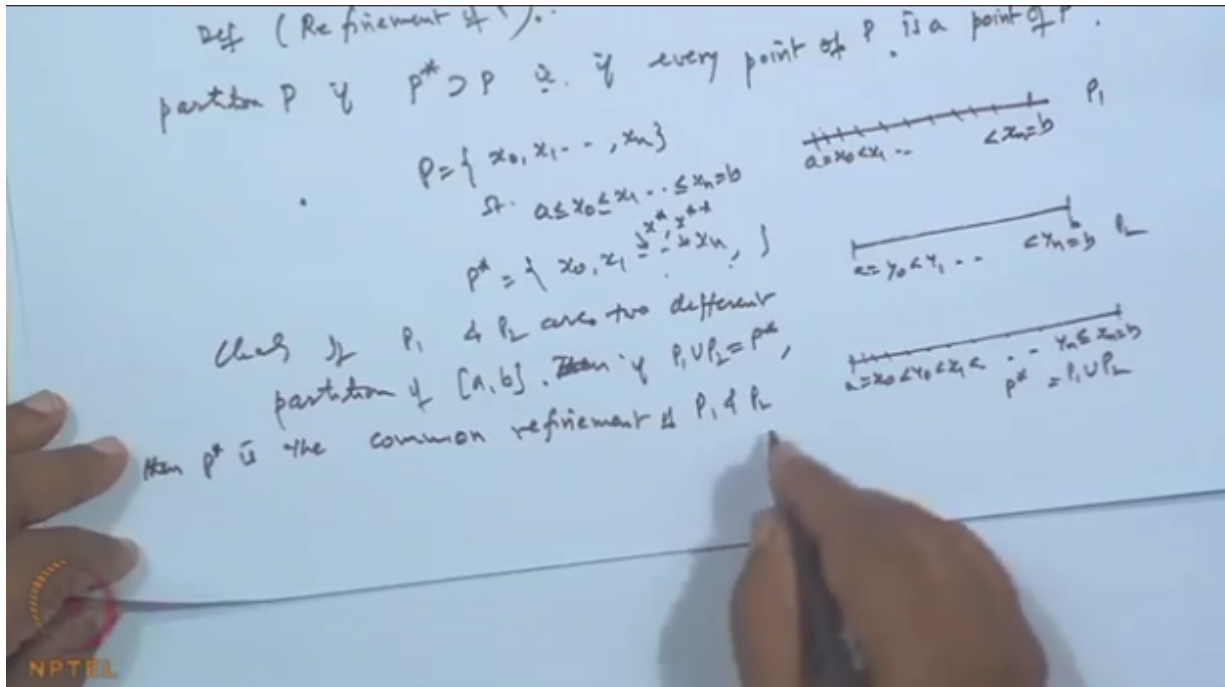 Def (Refinement of ).
partition P if P* ⊃ P ie. if every point of P is a point of P*.
P = { x₀, x₁ - - , xₙ }
St. a ≤ x₀ ≤ x₁ - - ≤ xₙ = b
x*, x**
P* = { x₀, x₁ - - xₙ, }
If P₁ & P₂ are two different
partition of [a, b]. if P₁ ∪ P₂ = P*,
then P* is the common refinement of P₁ & P₂
P₁
a = x₀ < x₁ - -
< xₙ = b
P₂
a = y₀ < y₁ - -
b
< yₙ = b
a = x₀ < y₀ < x₁ < . - - yₙ ≤ xₙ = b
P* = P₁ ∪ P₂
NPTEL